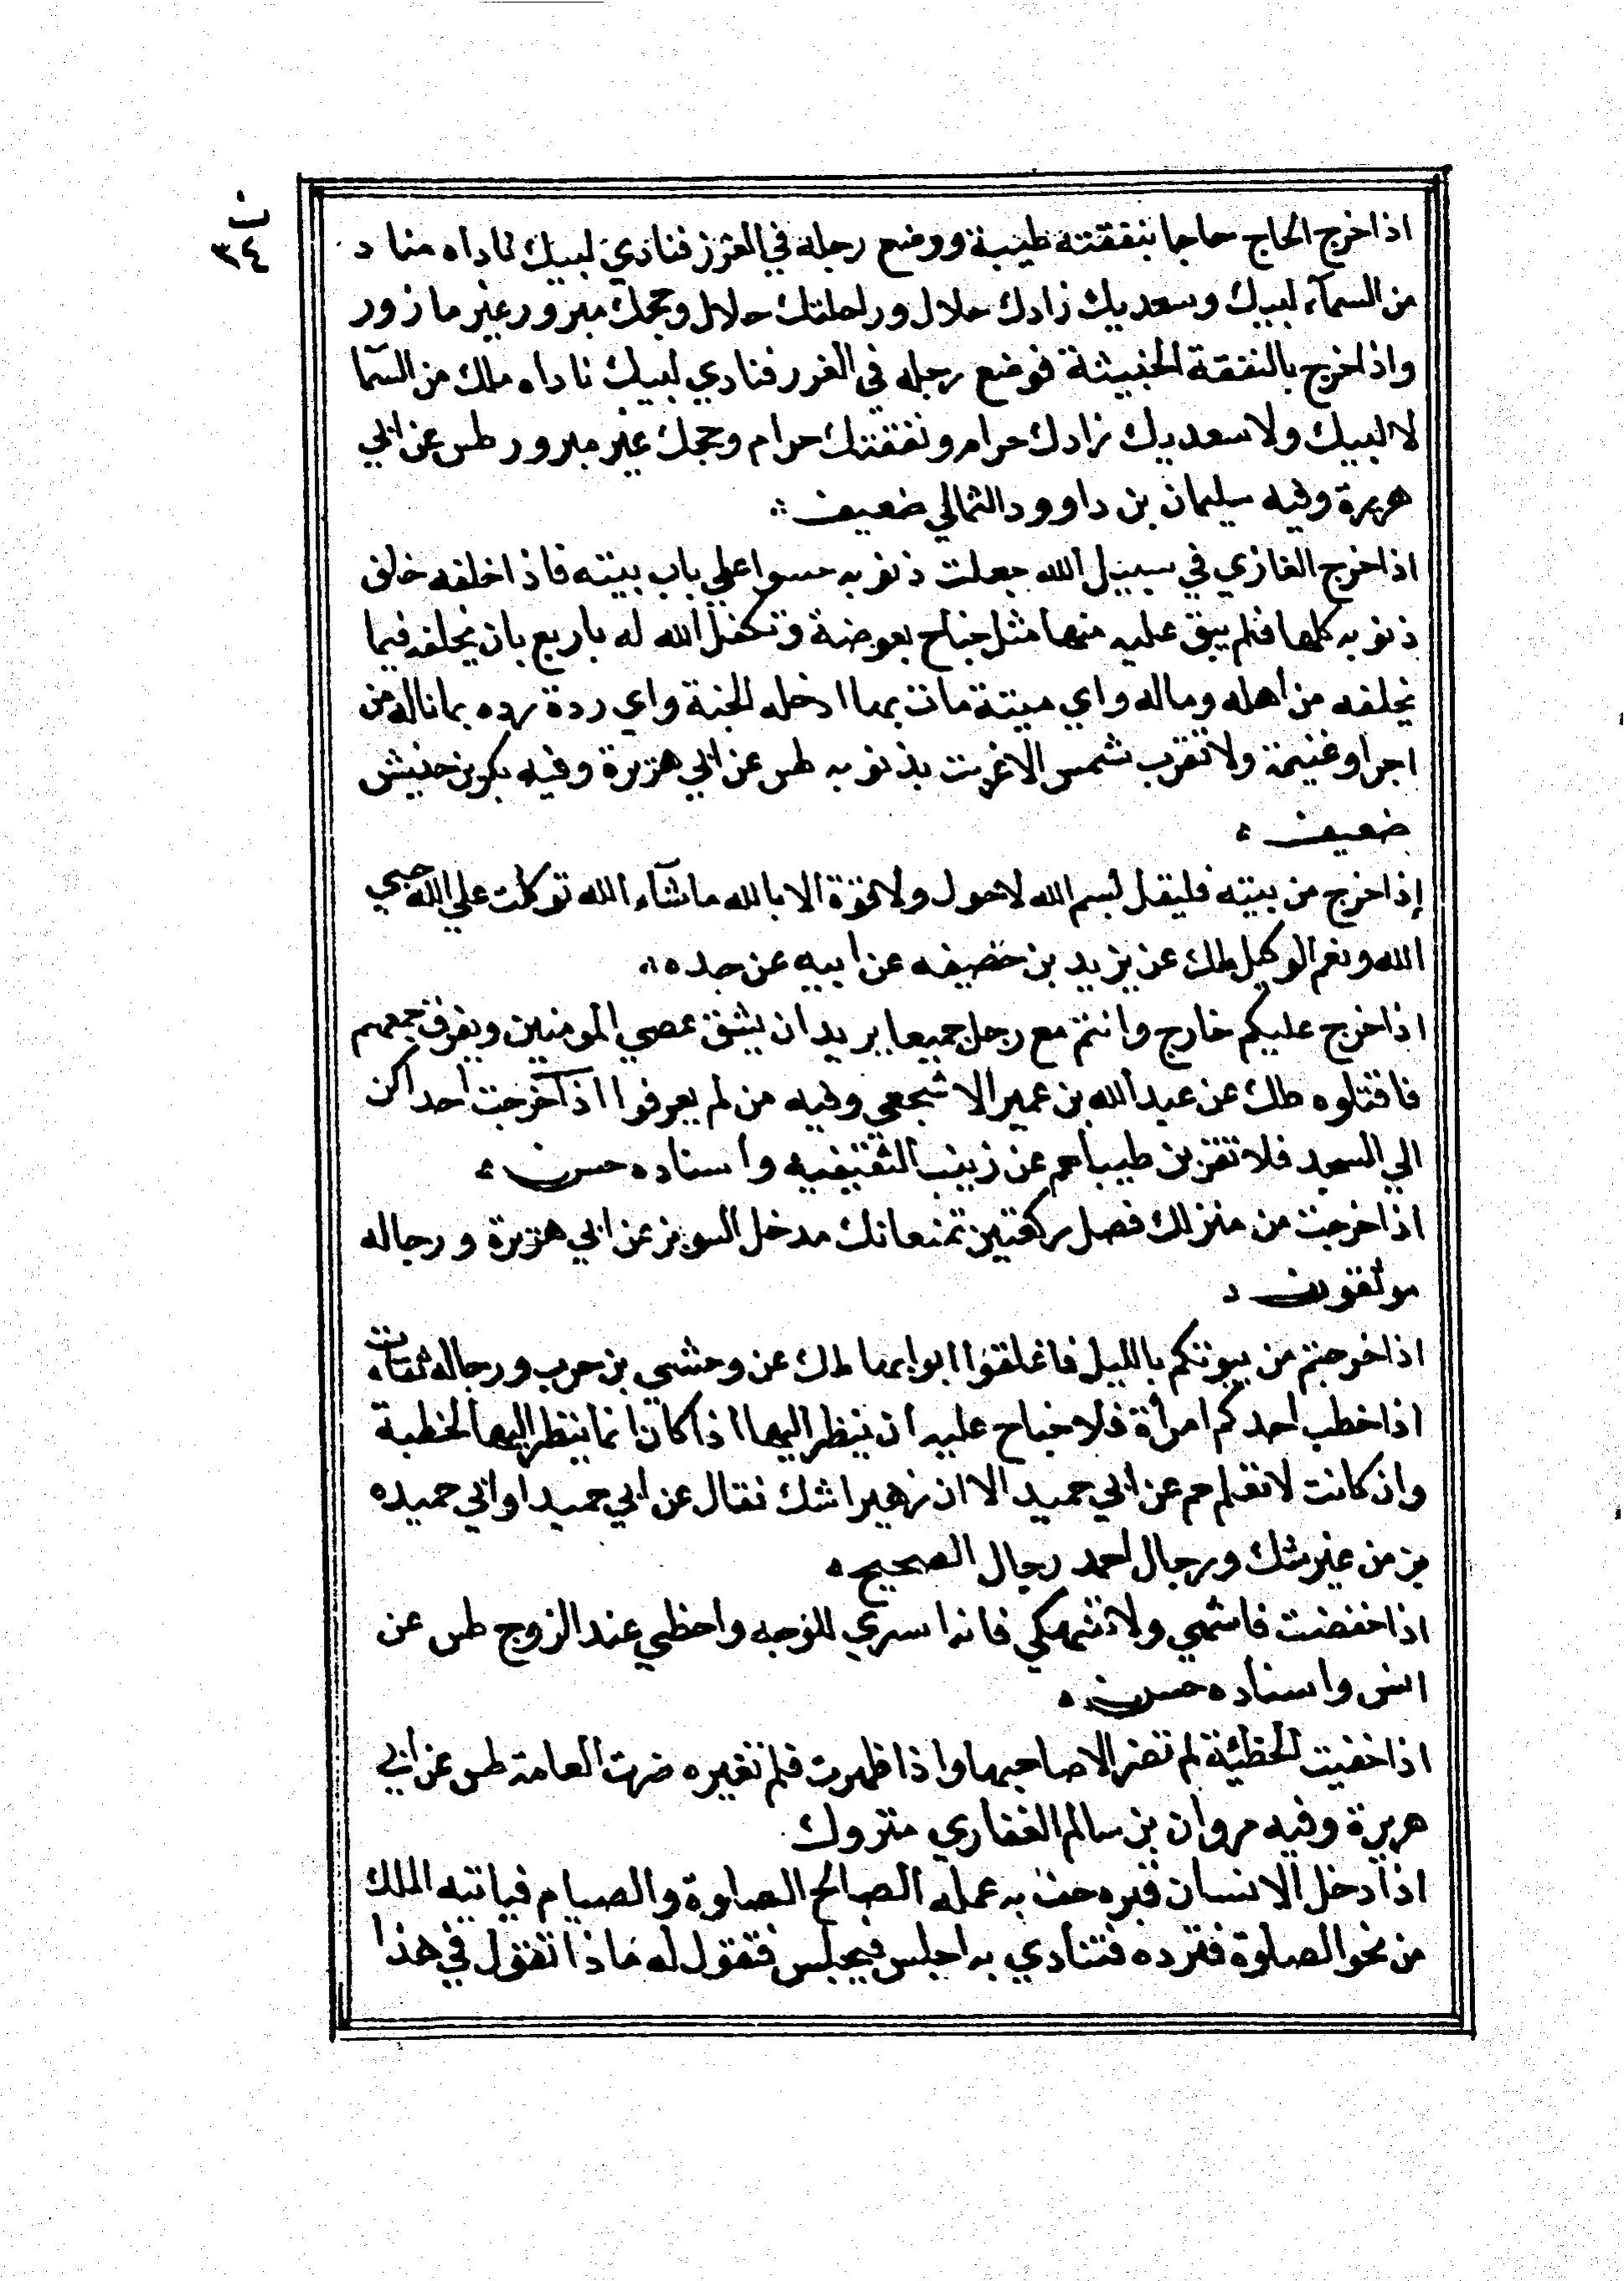 ن
٣٤
اذا خرج الحاج حاجا بنفقته طيبة ووضع رجله في الغرز فنادي لبيك ناداه مناد
من السمآء لبيك وسعديك زادك حلال وراحلتك حلال وحجك مبرور غير مازور
واذا خرج بالنفقة الخبيثة فوضع رجله في الغرر فنادي لبيك ناداه ملك من السمآ
لا لبيك ولا سعديك زادك حرام ونفقتك حرام وحجك غير مبرور طس عن ابي
هريرة وفيه سليمان بن داوود الثمالي ضعيف
اذا خرج الغازي في سبيل الله جعلت ذنوبه جسوا علي باب بيته فاذا خلفه خلف
ذنوبه كلها فلم يبق عليه منها مثل جناح بعوضة وتكفل الله له باربع بان يخلفه فيما
يخلفه من اهله وماله واي ميتة مات بها ادخله الجنة واي ردة رده بما ناله من
اجر او غنيمة ولا تقرب شمس الا غربت بذنوبه طس عن ابي هريرة وفيه بكر بن خنيش
ضعيف
إذا خرج من بيته فليقل بسم الله لاحول ولا قوة الا بالله ماشآء الله توكلت علي الله حسبي
الله ونعم الوكيل طك عن يزيد بن خصيفه عن ابيه عن جده
اذا خرج عليكم خارج وانتم مع رجل جميعا يريد ان يشق عصي المومنين ويفرق جمعهم
فاقتلوه طك عن عبد الله بن عمير الاشجعي وفيه من لم يعرفوا اذا خرجت احداكن
الي المسجد فلا تقربن طيبا حم عن زينب الثقيفيه واسناده حسن
اذا خرجت من منزلك فصل ركعتين تمنعانك مدخل السو بز عن ابي هريرة ورجاله
موثقون
اذا خرجتم من بيوتكم بالليل فاغلقوا ابوابها طك عن وحشي بن حرب ورجاله ثقات
اذا خطب احدكم امرأة فلا جناح عليه ان ينظر اليها اذا كان انما ينظر اليها لخطبة
وان كانت لا تعلم حم عن ابي حميد الا ان زهيرا شك فقال عن ابي حميد او ابي حميده
بز من غير شك ورجال احمد رجال الصحيح
اذا خفضت فاشمي ولا تنهكي فانه اسري للوجه واحظي عند الزوج طس عن
انس واسناده حسن
اذا خفيت الخطيئة لم تضر الا صاحبها واذا ظهرت فلم تغيره ضرت العامة طس عن ابي
هريرة وفيه مروان بن سالم الغفاري متروك
اذا دخل الانسان قبره حف به عمله الصالح الصلوة والصيام فياتيه الملك
من نحو الصلوة فترده فتنادي به اجلس فيجلس فتقول له ماذا تقول في هذا